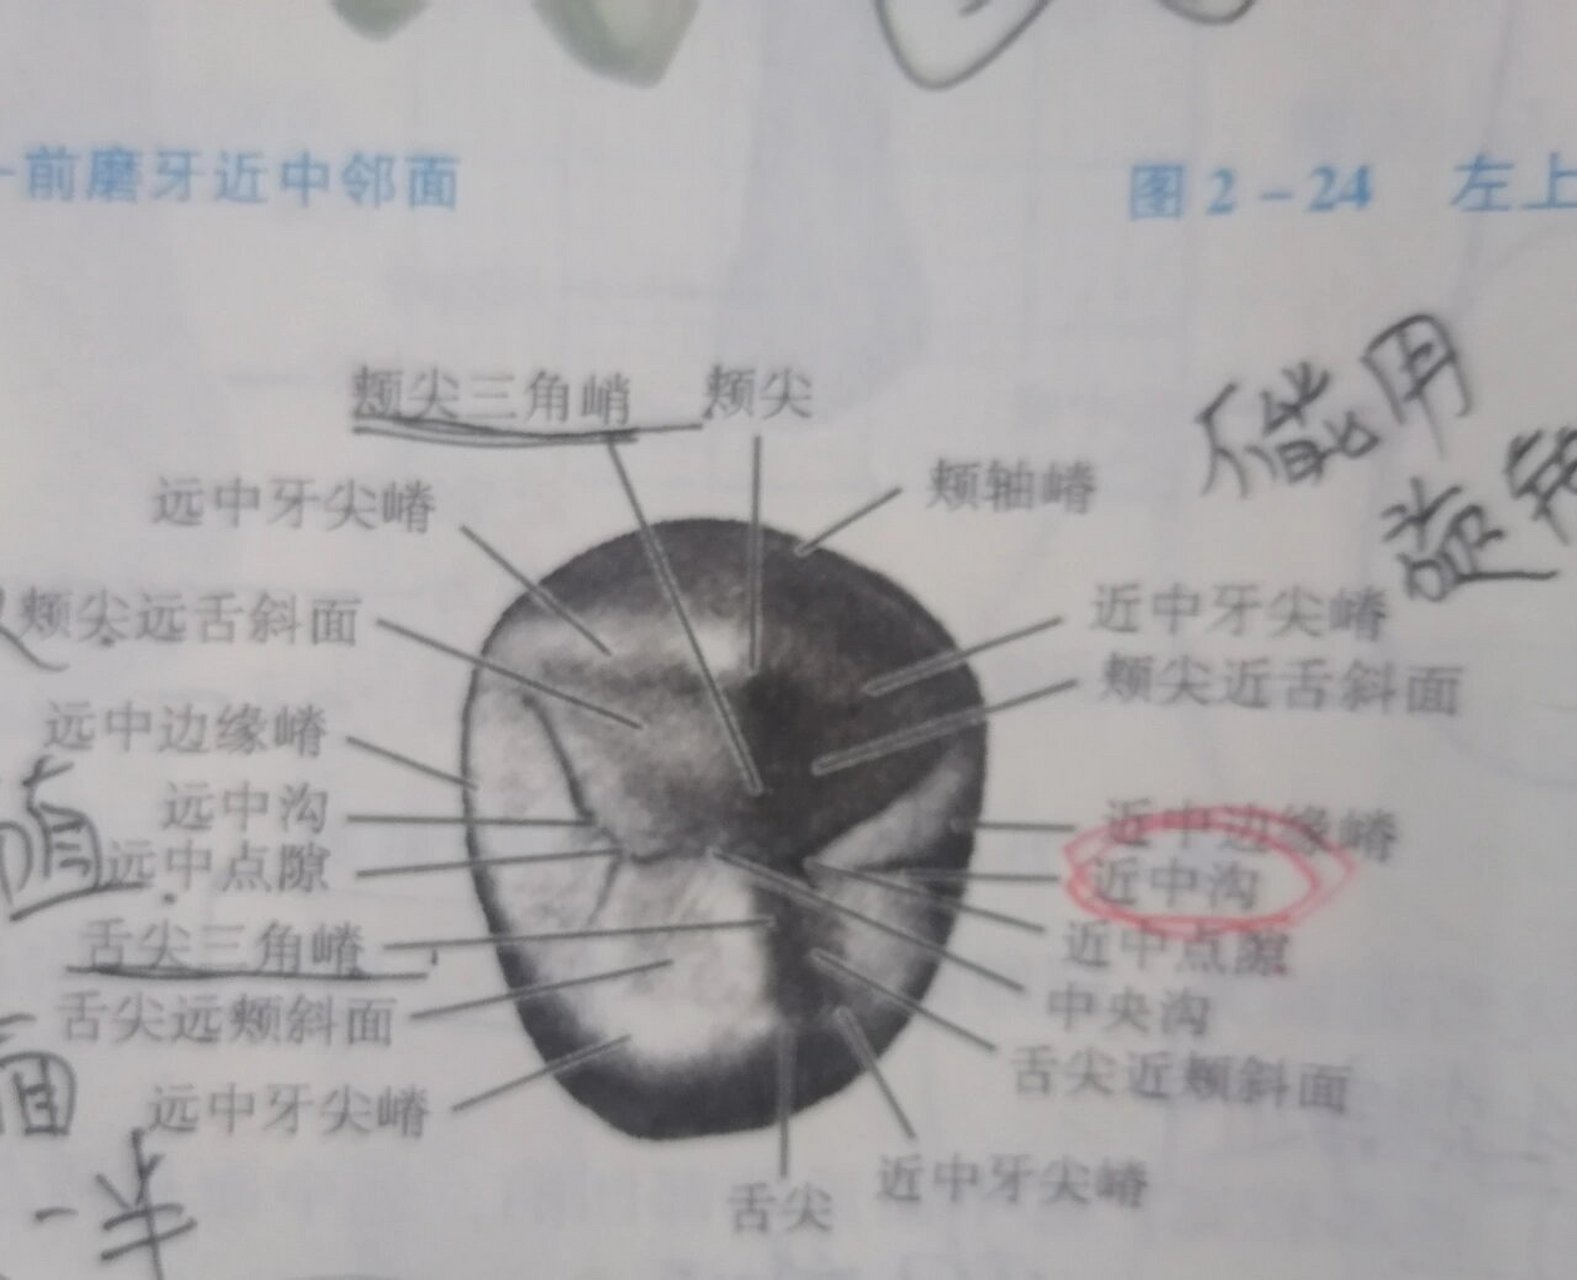 前磨牙近中邻面
图2-24 左上
颊尖三角嵴 颊尖
远中牙尖嵴
颊轴嵴
能用
颊尖远舌斜面
近中牙尖嵴
颊尖近舌斜面
远中边缘嵴
远中沟
近中边缘嵴
远中点隙
近中沟
舌尖三角嵴
近中点隙
舌尖远颊斜面
中央沟
舌尖近颊斜面
远中牙尖嵴
近中牙尖嵴
舌尖
一半